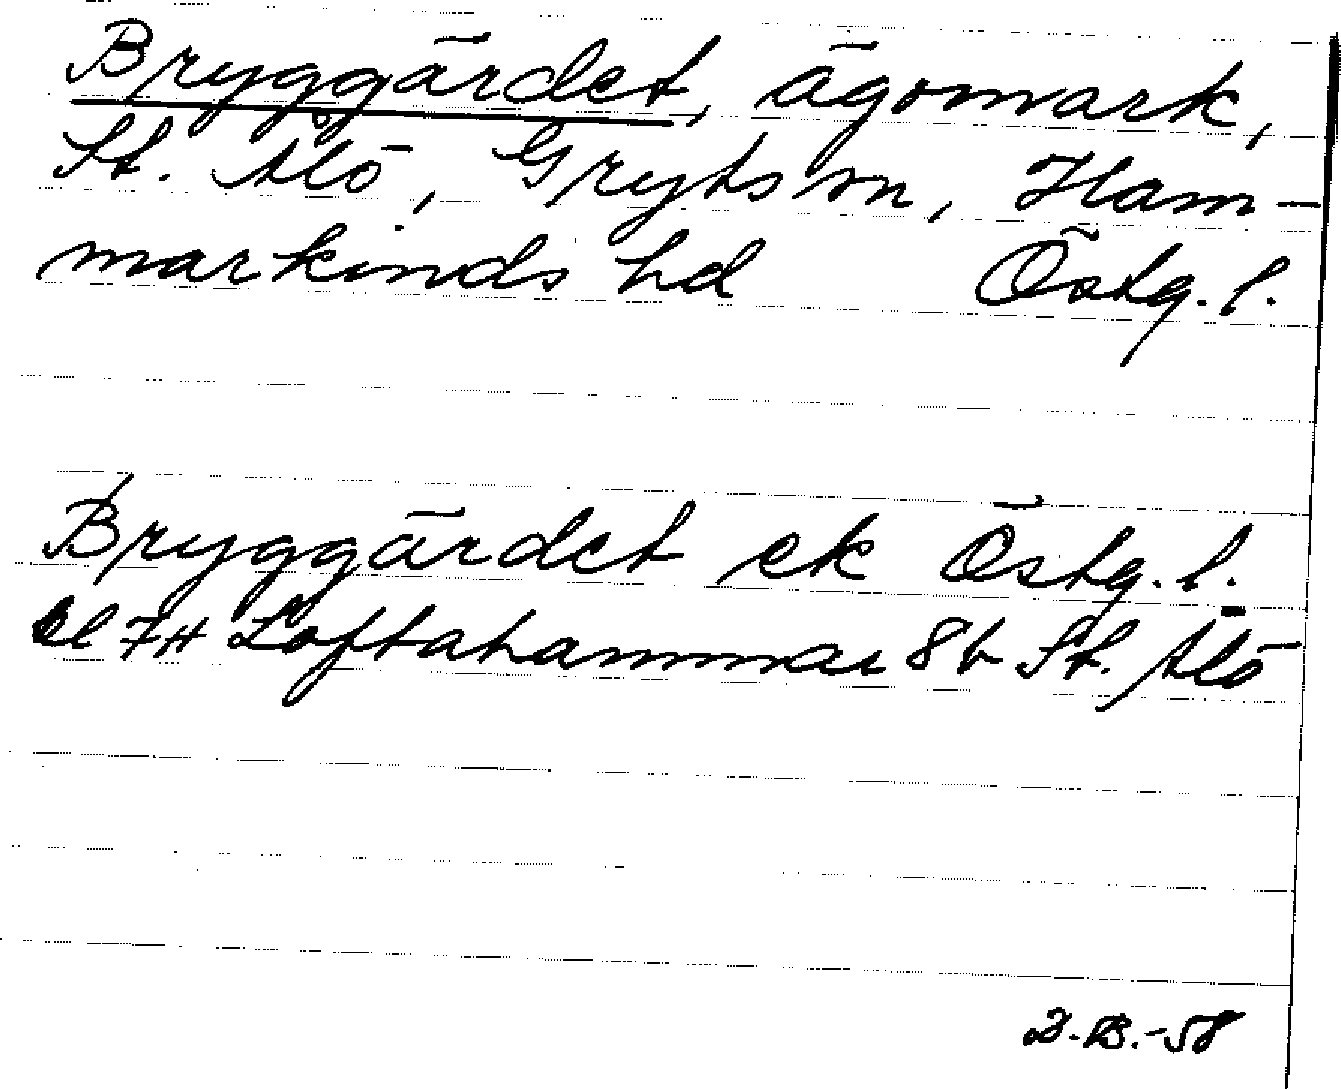 Bryggärdet, ägomark,
St. Alö, Gryts sn, Ham-
markinds hd Östg. l.
Bryggärdet ek Östg. l.
bl 7H Loftahammar 8b St. Alö
B.-58